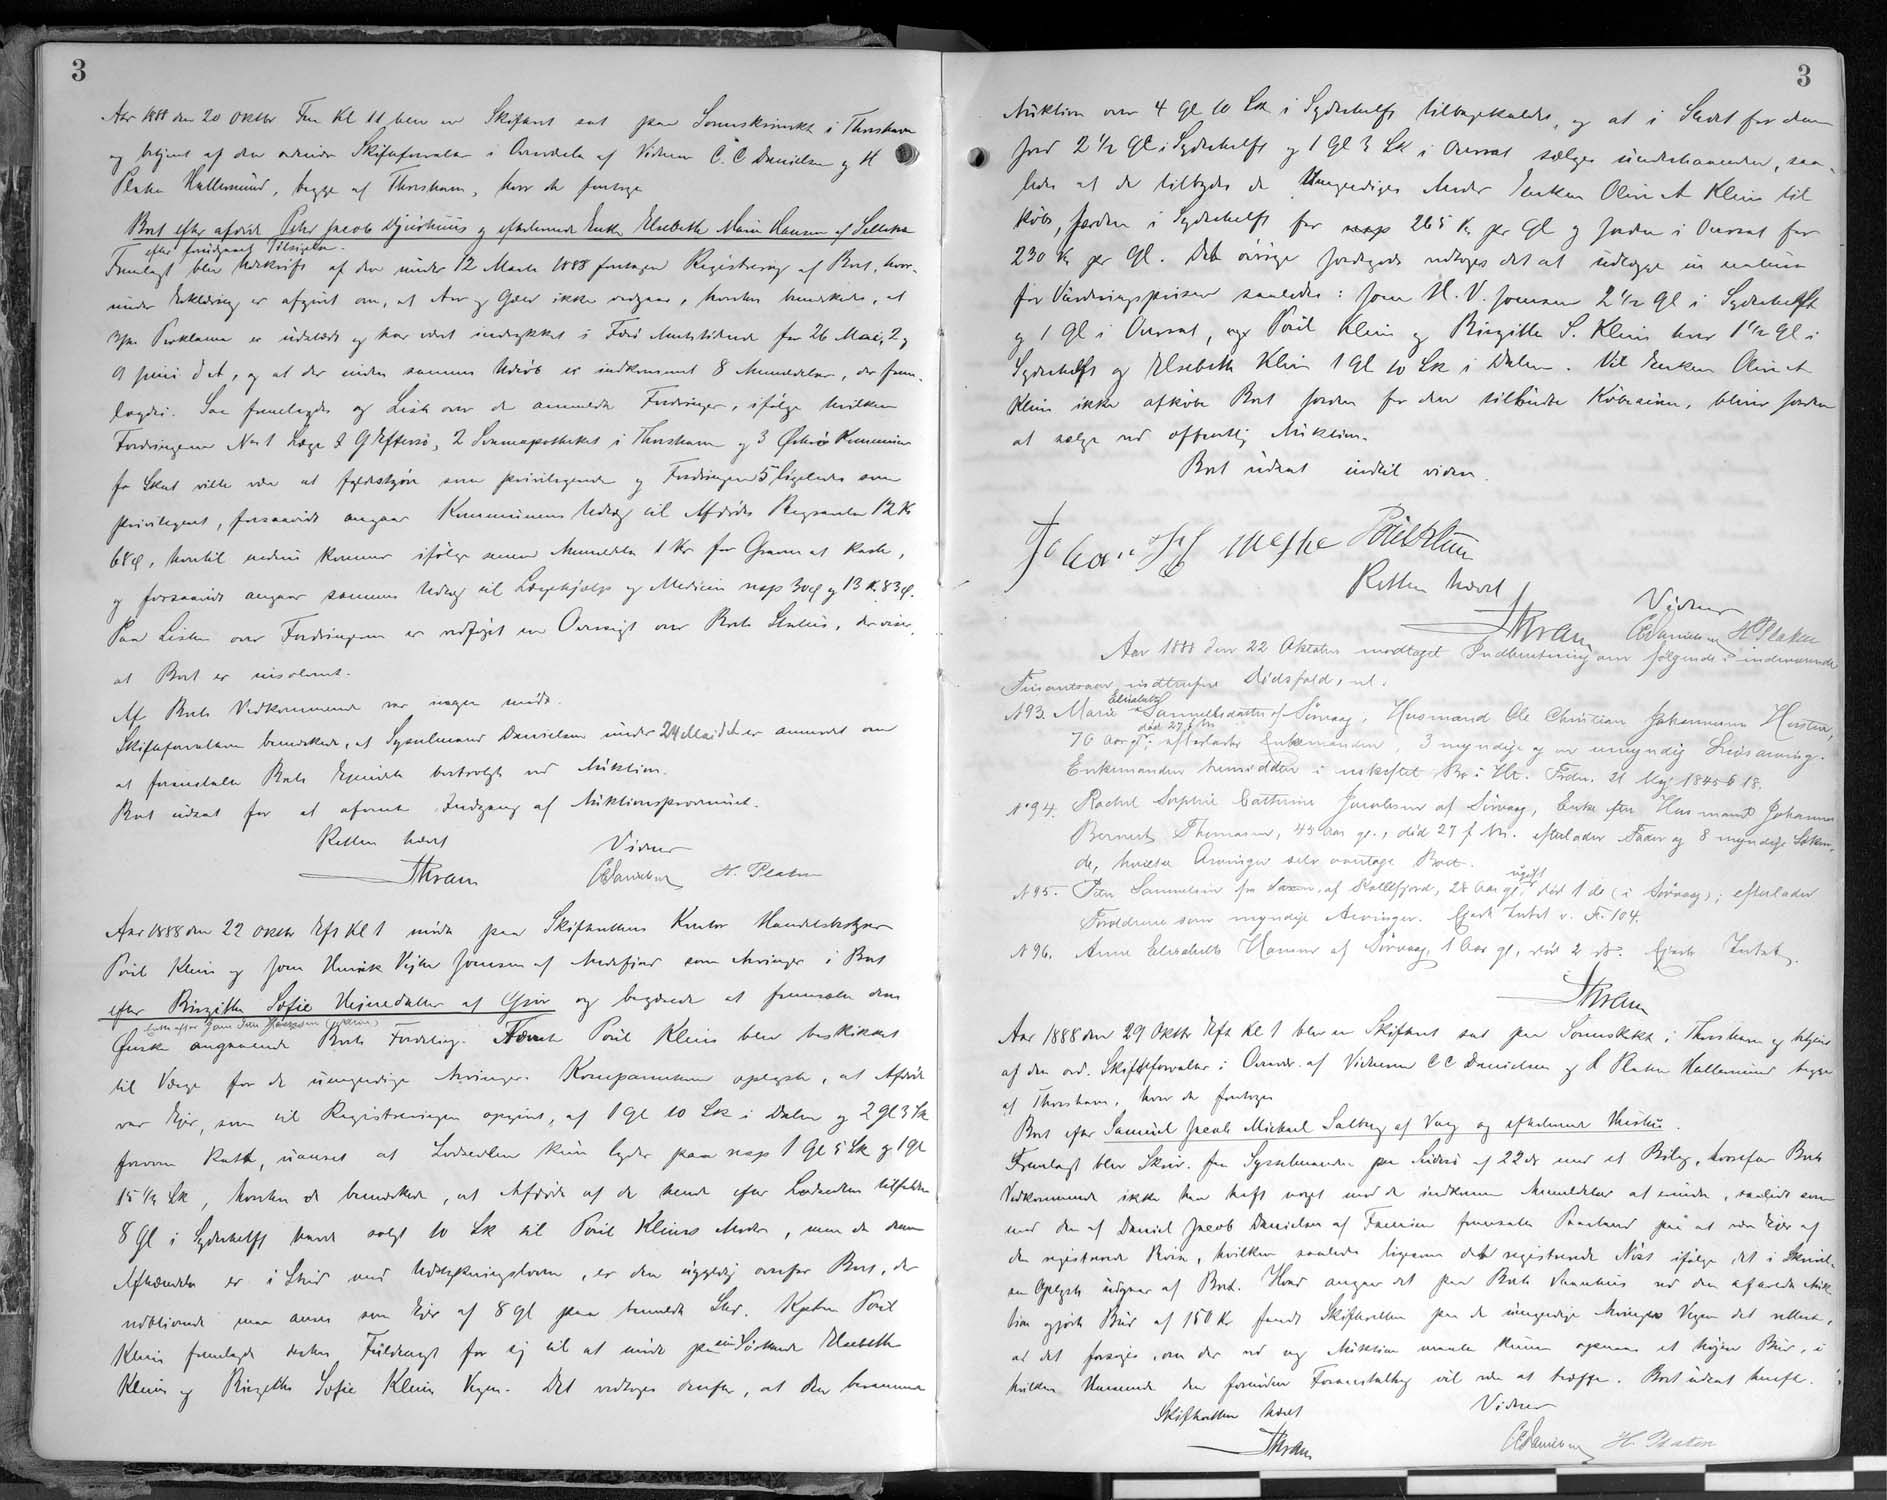 3
Aar 1888 den 20 Oktbr Fm Kl 11 blev en Skifteret sat paa Sorenskriverkt i Thorshavn
og betjent af den ordinære Skifteforvalter i Overværelse af Vidnerne C. C Danielsen og H
Platen Hallermund, begge af Thorshavn, hvor da foretoges
Boet efter afdøde Peter Jacob Djurhuus og efterlevende Enke Elsebeth Maria Hansen af Selletræ
efter forudgaaet Tilsigelse.
Fremlagt blev Udskrift af den under 12 Marts 1888 foretagne Registrering af Boet, hvor-
under Erklæring er afgivet om, at Arv og Gæld ikke vedgaaes, hvorhos bemærkedes, at
Proklama er udstedt og har været indrykket i Færø Amtstidende for 26 Mai, 2 og
9 Juni d A, og at der inden sammes Udløb er indkommet 8 Anmeldelser, der frem-
lagdes. Saa fremlagdes og Liste over de anmeldte Fordringer, ifølge hvilken
Fordringerne No 1 Læge J G Effersø, 2 Sonnapotheket i Thorshavn og 3 Østerø Kommune
for Skat ville være at fyldestgøre som privilegerede og Fordringen 5 ligeledes som
privilegeret, forsaavidt angaar Kommunens Udlæg til Afdødes Begravelse 12 Kr
68 Ø, hvortil endnu kommer ifølge senere Anmeldelse 1 Kr for Graven at kaste,
og forsaavidt angaar sammes Udlæg til Lægehjælp og Medicin resp 30 Ø og 13 K 83 Ø.
Paa Listen over Fordringerne er vedføjet en Oversigt over Boets Status, der viser,
at Boet er insolvent.
Af Boets Vedkommende var ingen mødt.
Skifteforvalteren bemærkede, at Sysselmand Danielsen under 24 Mai d A er anmodet om
at foranstalte Boets Ejendele bortsolgte ved Auktion.
Boet udsat for at afvente Indgang af Auktionsprovenuet.
Retten hævet Vidner
Skram CCDanielsen H. Platen
Aar 1888 den 22 Oktbr Eft Kl 1 mødte paa Skifterettens Kontor Handelsbestyrer
Poul Klein og Joen Henrik Vejhe Joensen af Andefjord som Arvinger i Boet
efter Birgitte Sofie Heinesdatter af Gjov og begærede at fremsætte deres
Ønske angaaende Boets Fordeling. Nævnte Poul Klein blev beskikket
til Værge for de umyndige Arvinger. Komparenterne oplyste, at Afdøde
var Ejer, som til Registreringen opgivet, af 1 Gl 10 Sk i Dalen og 2 Gl 3 Sk
foroven Rætt, uanset at Lodsedlen kun lyder paa resp 1 Gl 5 Sk og 1 Gl
15 1/2 Sk, hvorhos de bemærkede, at Afdøde af de hende efter Lodsedlen tilfaldne
8 Gl i Sydrehelft havde solgt 10 Sk til Poul Kleins Moder, men da denne
Afhændelse er i Strid med Udstykningsloven, er den ugyldig overfor Boet, der
vedblivende maa anses som Ejer af 8 Gl paa bemeldte Sted. Kptn Poul
Klein fremlagde derhos Fuldmagt for sig til at møde paa sin Søskende Elsebeth
Klein og Birgitte Sofie Klein Vegne. Det vedtoges derefter, at den berammede
3
Auktion over 4 Gl 10 Sk i Sydrehelft tilbagekaldes, og at i Stedet for denne
Jord 2 1/2 Gl i Sydrehelft og 1 Gl 3 Sk i Ovensat sælges underhaanden, saa-
ledes at de tilbydes de Umyndiges Moder Enken Olivet Klein til
Købs, Jorden i Sydrehelft for resp 265 Kr per Gl og Jorden i Ovensat for
230 Kr per Gl. Det øvrige Jordegods vedtoges det at udlægge in natura
for Vurderingsprisen saaledes: Joen H. V. Joensen 2 1/2 Gl i Sydrehelft
og 1 Gl i Ovensat, og Poul Klein og Birgitte S. Klein hver 1 1/2 Gl i
Sydrehelft og Elsebeth Klein 1 Gl 10 Sk i Dalen. Vil Enken Olivet
Klein ikke afkøbe Boet Jorden for den tilbudte Købesum, bliver Jorden
at sælge ved offentlig Auktion.
Boet udsat indtil videre.
Poul Klein
Retten hævet
Vidner
Skram CCDanielsen H Platen
Aar 1888 den 22 Oktober modtaget Indberetning om følgende i indeværende
Finantsaar indtrufne Dødsfald, nl.
N 93. Marie Elisabeth Samuelsdatter af Sørvaag, Husmand Ole Christian Johannesens Hustru,
død 27 f. M.
70 Aar gl; efterlader Enkemanden, 3 myndige og en umyndig Livsarving.
Enkemanden hensidder i uskiftet Bo i Hh. Frdn. 21 Maj 1845 § 18.
N° 94. Rachel Sophie Cathrine Jacobsen af Sørvaag, Enke efter Husmand Johannes
Bernert Thomasen, 45 Aar gl., død 27 f Mi. efterlader Fader og 8 myndige Søsken-
de, hvilke Arvinger selv overtage Boet.
N 95. Peter Samuelsen fra Saxen, af Kollefjord, 28 Aar gl, ugift død 1 ds (i Sørvaag); efterlader
Forældrene som myndige Arvinger. Ejede Intet v. F. 104.
N 96. Anne Elisabeth Hansen af Sørvaag, 1 Aar gl, død 2 ds. Ejede Intet.
Skram
Aar 1888 den 29 Oktbr Eft Kl 1 blev en Skifteret sat paa Sorenskkt i Thorshavn og betjent
af den ord. Skifteforvalter i Overvær. af Vidnerne C C Danielsen og H Platen Hallermund begge
af Thorshavn, hvor da foretoges
Boet efter Samuel Jacob Michael Salberg af Vaag og efterlevende Hustru.
Fremlagt blev Skriv. fra Sysselmanden paa Suderø af 22 ds med et Bilag, hvorefter Boets
Vedkommende ikke har haft noget mod de indkomne Anmeldelser at erindre, saavidt som
mod den af Daniel Jacob Danielsen af Famien fremsatte Paastand paa at være Ejer af
den registrerede Kvie, hvilken saaledes ligesom det registrerede Nøst ifølge det i Skrivel-
sen Oplyste udgaar af Boet. Hvad angaar det paa Boets Vaanhus ved den afholdte Auk-
tion gjorte Bud af 150 Kr fandt Skifteretten paa de umyndige Arvinges Vegne det rettest,
at det forsøges, om der ved ny Auktion maatte kunne opnaaes et højere Bud, i
hvilken Henseende den fornødne Foranstaltning vil være at træffe. Boet udsat herefter.
Skifteretten hævet Vidner
Skram CCDanielsen H. Platen